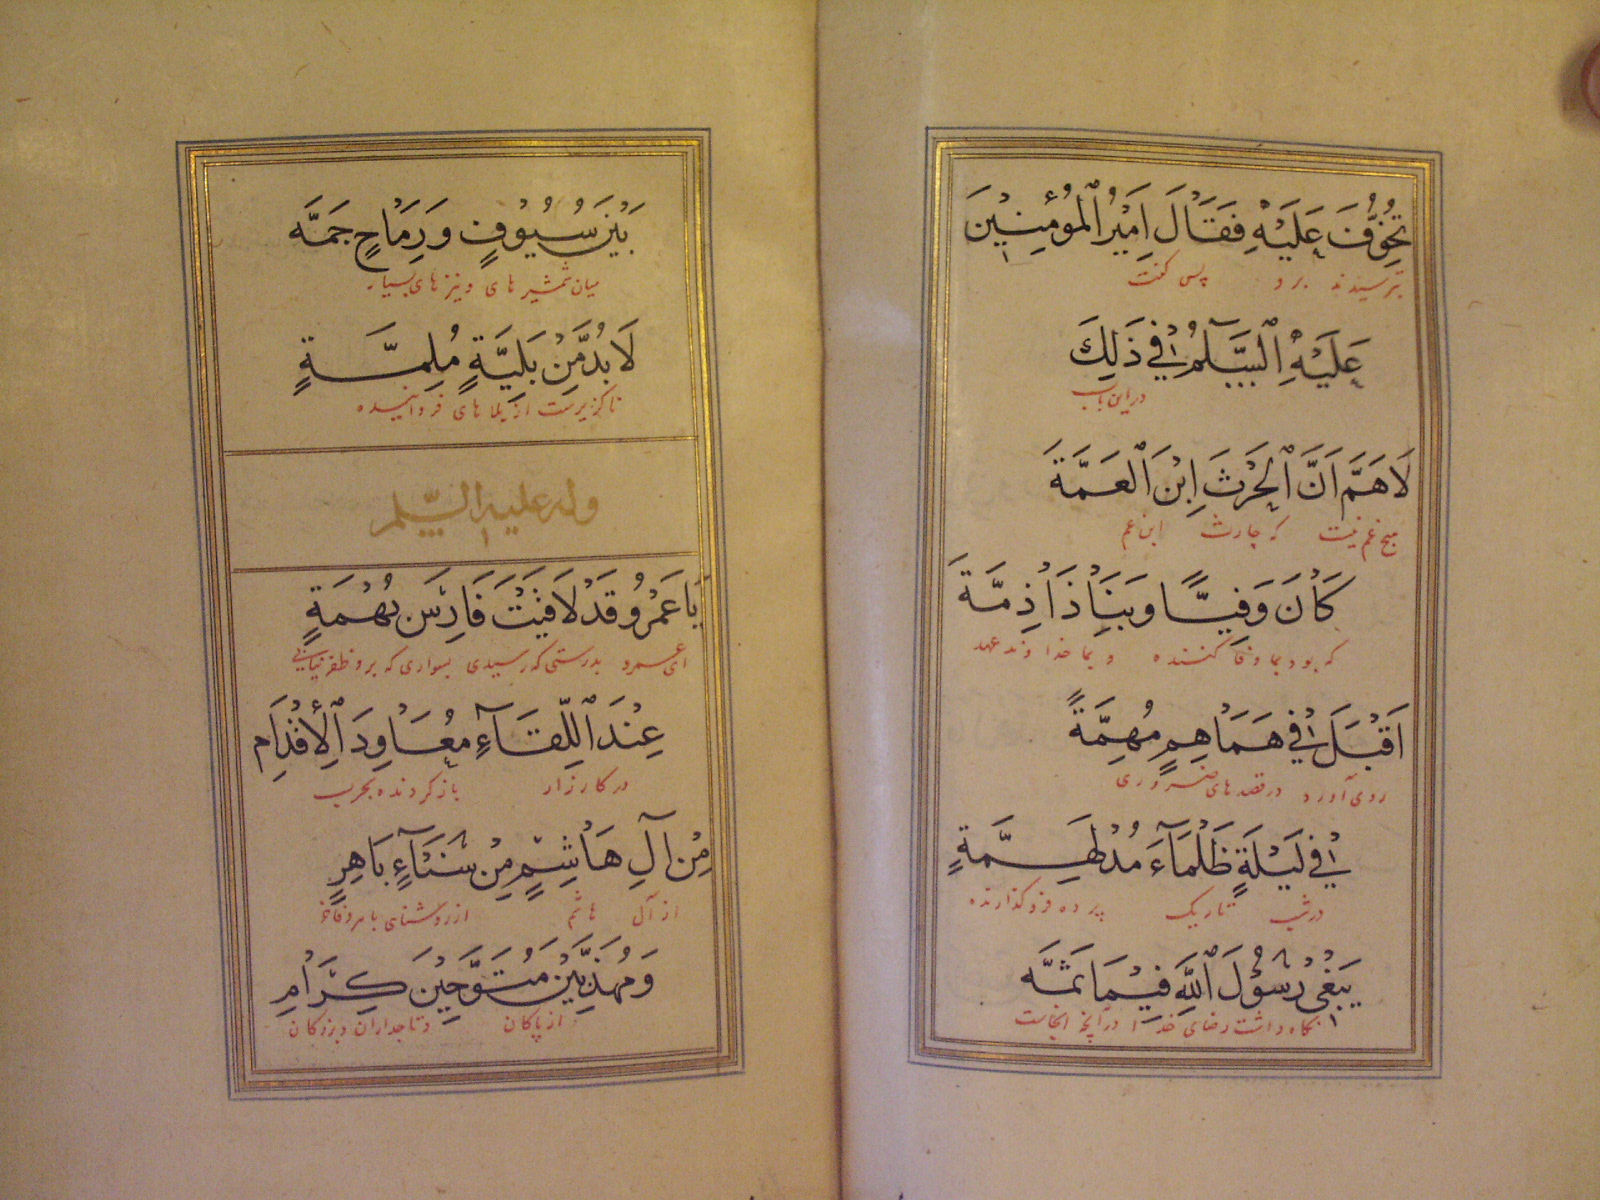 تُخُوِّفَ عَلَيْهِ فَقَالَ اَمِيْرُ الْمُؤْمِنِيْنَ
بترسیدند برو پس گفت
عَلَيْهِ السَّلَامُ فِي ذَلِكَ
در این باب
لَا هَمَّ اَنَّ الْحٰرْثَ ابْنَ الْعَمَّةَ
هیچ غم نیست که حارث ابن عم
كَانَ وَفِيًّا وَبِنَا ذَا ذِمَّةَ
که بود بما وفا کننده و بما خداوند عهد
اَقْبَلَ فِي هَمَاهِمٍ مُهِمَّةً
روی آورد در قصدهای ضروری
فِي لَيْلَةٍ ظَلْمَآءَ مُدْلَهِمَّةٍ
در شب تاریک پرده فرو گذارنده
يَبْغِي رَسُوْلَ اللّٰهِ فِيْمَا ثَمَّه
نگاه داشت رضای خدا در آنچه آنجاست
بَيْنَ سُيُوْفٍ وَرِمَاحٍ جَمَّه
میان شمشیرهای و نیزهای بسیار
لَا بُدَّ مِنْ بَلِيَّةٍ مُلِمَّةٍ
ناگزیرست از بلاهای فرود آینده
وله عليه السلم
يَا عَمْرُو قَدْ لَاقَيْتَ فَارِسَ بُهْمَةٍ
ای عمرو بدرستی که رسیدی بسواری که برو ظفر نیابی
عِنْدَ اللِّقَآءِ مُعَاوِدَ الْأِقْدَامِ
در کارزار باز گردنده بحرب
مِنْ آلِ هَاشِمٍ مِنْ سَنَآءٍ بَاهِرٍ
از آل هاشم از روشنای باهر و فاخر
وَمُهَذَّبِيْنَ مُتَوَّجِيْنَ كِرَامِ
از پاکان و تاجداران و بزرگان